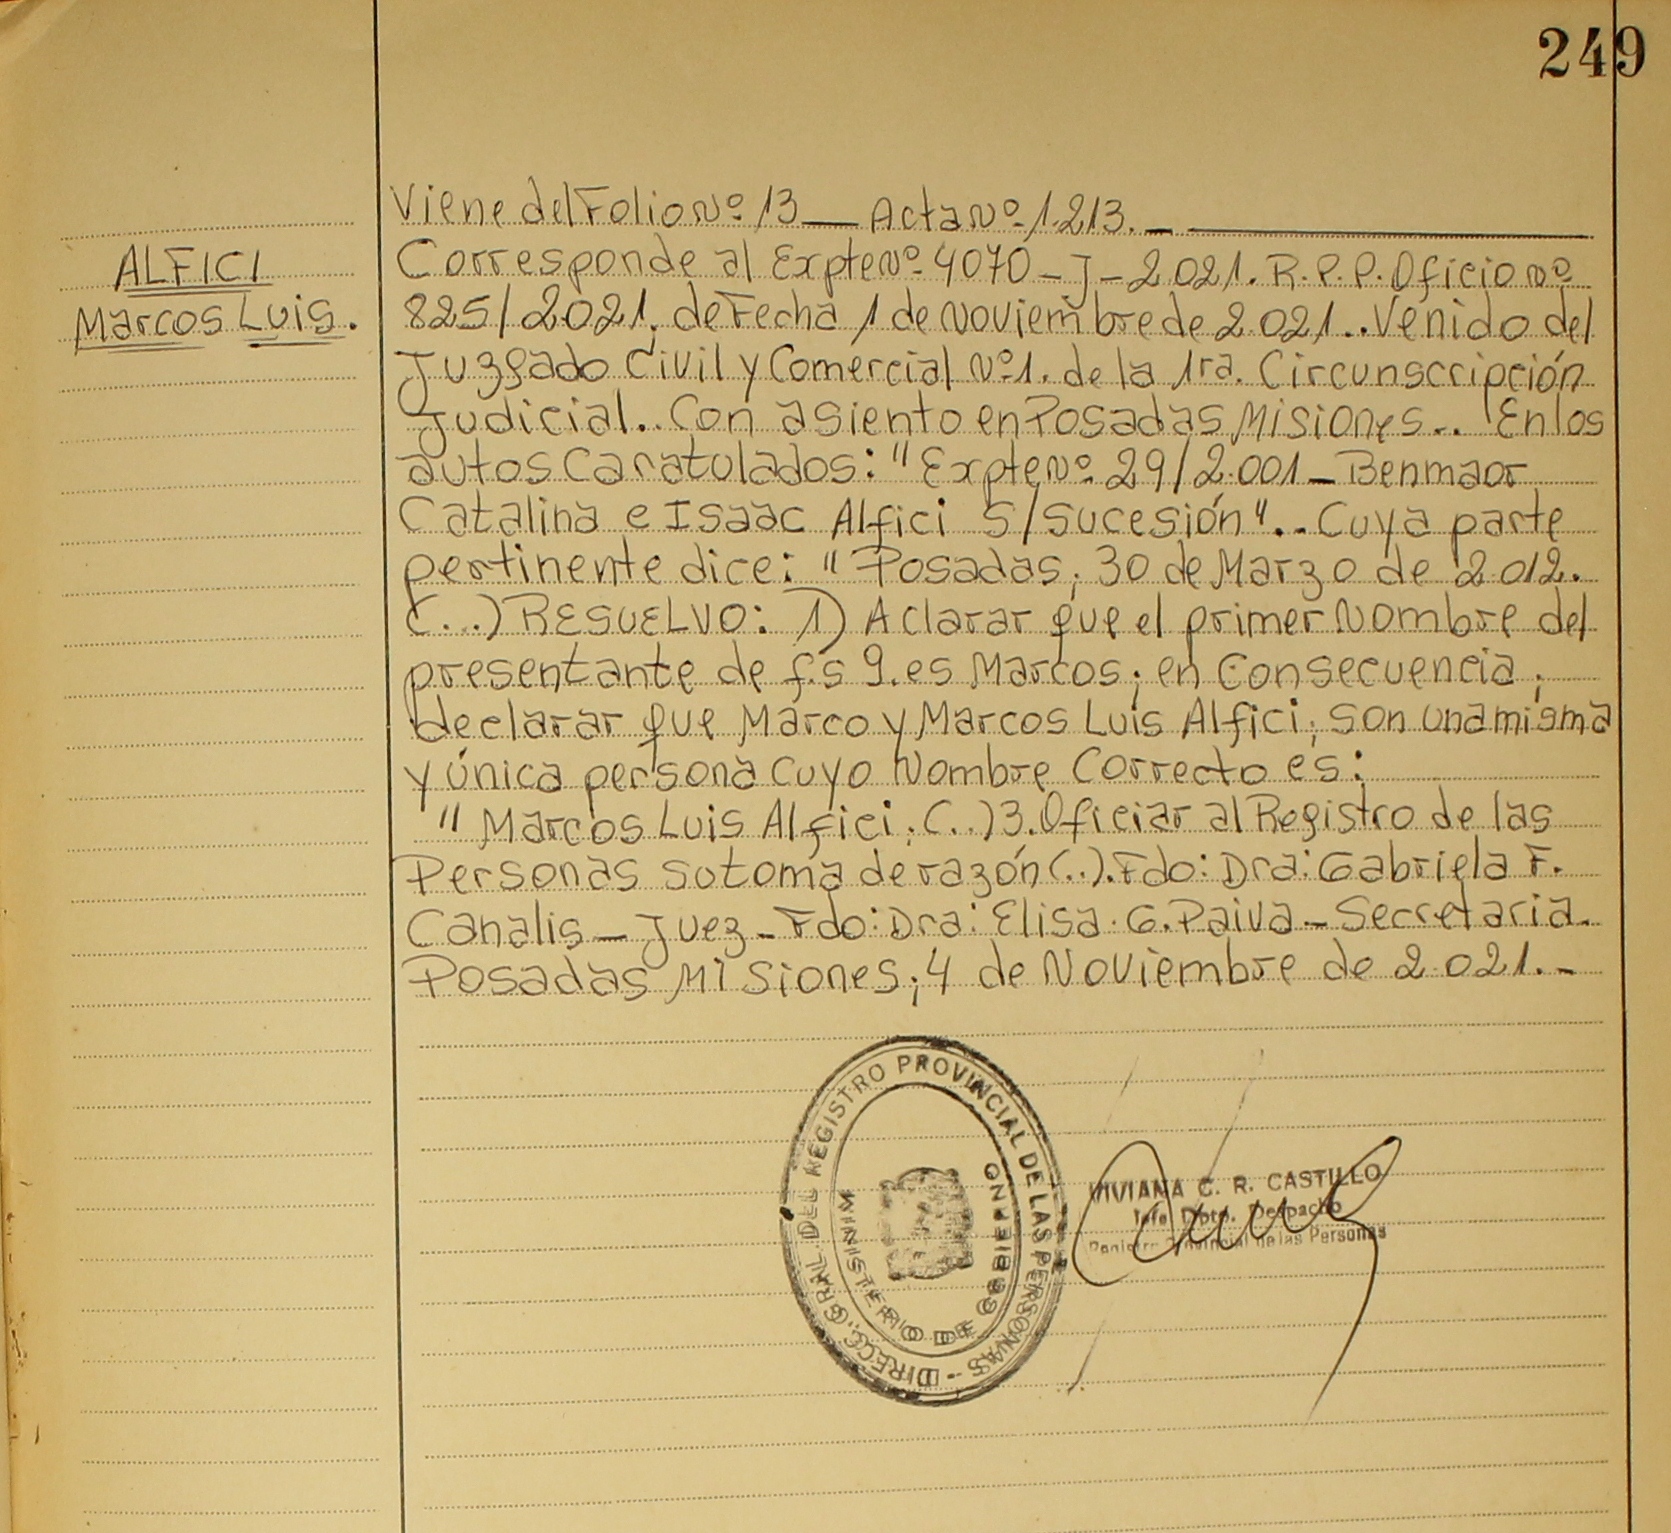 249
ALFICI
Marcos Luis.
Viene del Folio Nº 13 — Acta Nº 1.213. —
Corresponde al Expte Nº 4070 - J - 2021. R.P.P. Oficio nº
825/2021, de Fecha 1 de Noviembre de 2021.. Venido del
Juzgado Civil y Comercial Nº 1. de la 1ra. Circunscripción
Judicial.. Con asiento en Posadas Misiones.. En los
autos Caratulados: "Expte Nº 29/2.001 - Benmaor
Catalina e Isaac Alfici S/Sucesión".. Cuya parte
pertinente dice: "Posadas, 30 de Marzo de 2.012.
(...) RESUELVO: 1) Aclarar que el primer Nombre del
presentante de f.s 9. es Marcos; en Consecuencia,
declarar que Marco y Marcos Luis Alfici, son una misma
y única persona Cuyo Nombre Correcto es:
"Marcos Luis Alfici, (..) 3. Oficiar al Registro de las
Personas su toma de razón (..). Fdo: Dra: Gabriela F.
Canalis - Juez - Fdo: Dra: Elisa. G. Paiva - Secretaria.
Posadas Misiones, 4 de Noviembre de 2.021. -
DIREC. GRAL. DEL REGISTRO PROVINCIAL DE LAS PERSONAS -
MINISTERIO DE GOBIERNO
VIVIANA C. R. CASTILLO
Jefe Dpto. Despacho
Registro Provincial de las Personas